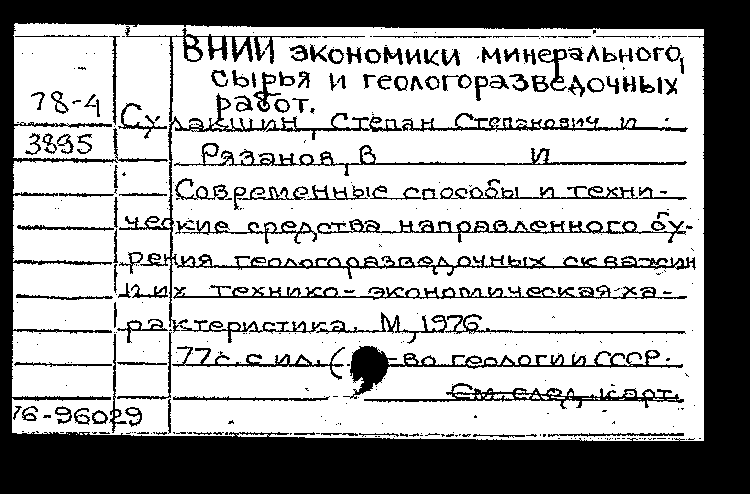 ВНИИ экономики минерального
сырья и геологоразведочных
работ.
78-4
Сулакшин, Степан Степанович и
3895
Рязанов, В И
Современные способы и техни-
ческие средства направленного бу-
рения геологоразведочных скважин
и их технико-экономическая ха-
рактеристика. М, 1976.
77с. с ил. ( -во геологии СССР.
См. след. карт.
76-96029